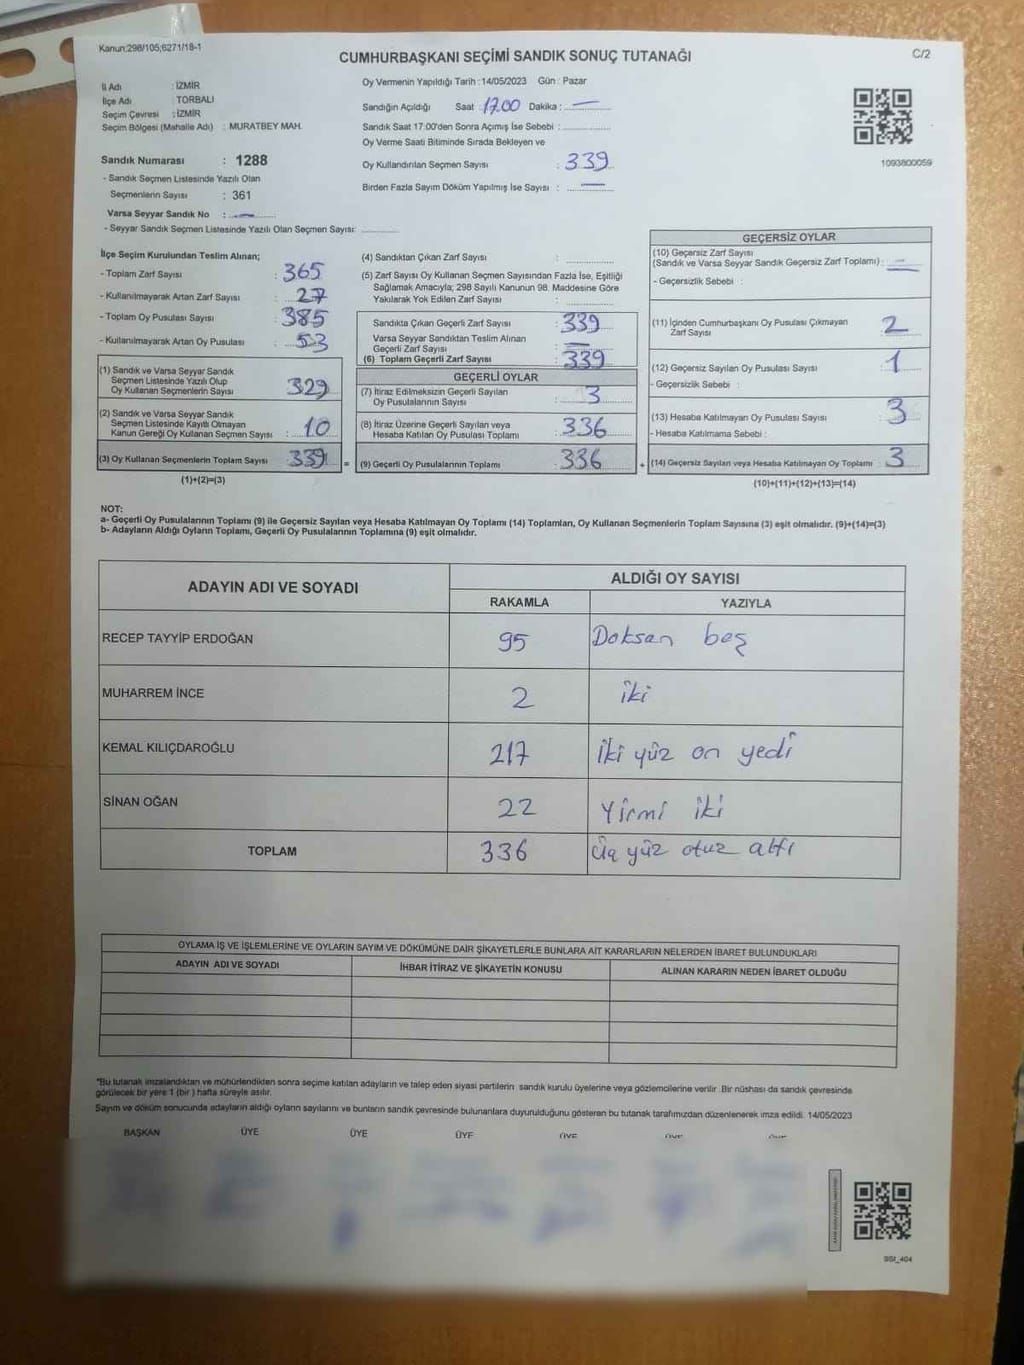 Kanun:298/105;6271/18-1
CUMHURBAŞKANI SEÇİMİ SANDIK SONUÇ TUTANAĞI
C/2
İl Adı : İZMİR
İlçe Adı : TORBALI
Seçim Çevresi : İZMİR
Seçim Bölgesi (Mahalle Adı) : MURATBEY MAH.
Sandık Numarası : 1288
- Sandık Seçmen Listesinde Yazılı Olan
Seçmenlerin Sayısı : 361
Varsa Seyyar Sandık No : —
- Seyyar Sandık Seçmen Listesinde Yazılı Olan Seçmen Sayısı:
Oy Vermenin Yapıldığı Tarih : 14/05/2023 Gün : Pazar
Sandığın Açıldığı Saat : 17.00 Dakika : —
Sandık Saat 17:00'den Sonra Açımış İse Sebebi :
Oy Verme Saati Bitiminde Sırada Bekleyen ve
Oy Kullandırılan Seçmen Sayısı : 339
Birden Fazla Sayım Döküm Yapılmış İse Sayısı : —
1093800059
İlçe Seçim Kurulundan Teslim Alınan;
- Toplam Zarf Sayısı : 365
- Kullanılmayarak Artan Zarf Sayısı : 27
- Toplam Oy Pusulası Sayısı : 385
- Kullanılmayarak Artan Oy Pusulası : 53
(1) Sandık ve Varsa Seyyar Sandık
Seçmen Listesinde Yazılı Olup
Oy Kullanan Seçmenlerin Sayısı : 329
(2) Sandık ve Varsa Seyyar Sandık
Seçmen Listesinde Kayıtlı Olmayan
Kanun Gereği Oy Kullanan Seçmen Sayısı : 10
(3) Oy Kullanan Seçmenlerin Toplam Sayısı : 339 =
(1)+(2)=(3)
(4) Sandıktan Çıkan Zarf Sayısı :
(5) Zarf Sayısı Oy Kullanan Seçmen Sayısından Fazla İse, Eşitliği
Sağlamak Amacıyla; 298 Sayılı Kanunun 98. Maddesine Göre
Yakılarak Yok Edilen Zarf Sayısı :
Sandıkta Çıkan Geçerli Zarf Sayısı : 339
Varsa Seyyar Sandıktan Teslim Alınan
Geçerli Zarf Sayısı : —
(6) Toplam Geçerli Zarf Sayısı : 339
GEÇERLİ OYLAR
(7) İtiraz Edilmeksizin Geçerli Sayılan
Oy Pusulalarının Sayısı : 3
(8) İtiraz Üzerine Geçerli Sayılan veya
Hesaba Katılan Oy Pusulası Toplamı : 336
(9) Geçerli Oy Pusulalarının Toplamı : 336 +
GEÇERSİZ OYLAR
(10) Geçersiz Zarf Sayısı
(Sandık ve Varsa Seyyar Sandık Geçersiz Zarf Toplamı) : —
- Geçersizlik Sebebi :
(11) İçinden Cumhurbaşkanı Oy Pusulası Çıkmayan
Zarf Sayısı : 2
(12) Geçersiz Sayılan Oy Pusulası Sayısı : 1
- Geçersizlik Sebebi :
(13) Hesaba Katılmayan Oy Pusulası Sayısı : 3
- Hesaba Katılmama Sebebi :
(14) Geçersiz Sayılan veya Hesaba Katılmayan Oy Toplamı : 3
(10)+(11)+(12)+(13)=(14)
NOT:
a- Geçerli Oy Pusulalarının Toplamı (9) ile Geçersiz Sayılan veya Hesaba Katılmayan Oy Toplamı (14) Toplamları, Oy Kullanan Seçmenlerin Toplam Sayısına (3) eşit olmalıdır. (9)+(14)=(3)
b- Adayların Aldığı Oyların Toplamı, Geçerli Oy Pusulalarının Toplamına (9) eşit olmalıdır.
ADAYIN ADI VE SOYADI
ALDIĞI OY SAYISI
RAKAMLA YAZIYLA
RECEP TAYYİP ERDOĞAN 95 Doksan beş
MUHARREM İNCE 2 iki
KEMAL KILIÇDAROĞLU 217 İki yüz on yedi
SİNAN OĞAN 22 Yirmi iki
TOPLAM 336 Üç yüz otuz altı
OYLAMA İŞ VE İŞLEMLERİNE VE OYLARIN SAYIM VE DÖKÜMÜNE DAİR ŞİKAYETLERLE BUNLARA AİT KARARLARIN NELERDEN İBARET BULUNDUKLARI
ADAYIN ADI VE SOYADI İHBAR İTİRAZ VE ŞİKAYETİN KONUSU ALINAN KARARIN NEDEN İBARET OLDUĞU
*Bu tutanak imzalandıktan ve mühürlendikten sonra seçime katılan adayların ve talep eden siyasi partilerin sandık kurulu üyelerine veya gözlemcilerine verilir. Bir nüshası da sandık çevresinde
görülecek bir yere 1 (bir ) hafta süreyle asılır.
Sayım ve döküm sonucunda adayların aldığı oyların sayılarını ve bunların sandık çevresinde bulunanlara duyurulduğunu gösteren bu tutanak tarafımızdan düzenlenerek imza edildi. 14/05/2023
BAŞKAN ÜYE ÜYE ÜYE ÜYE ÜYE ÜYE
SSI_404